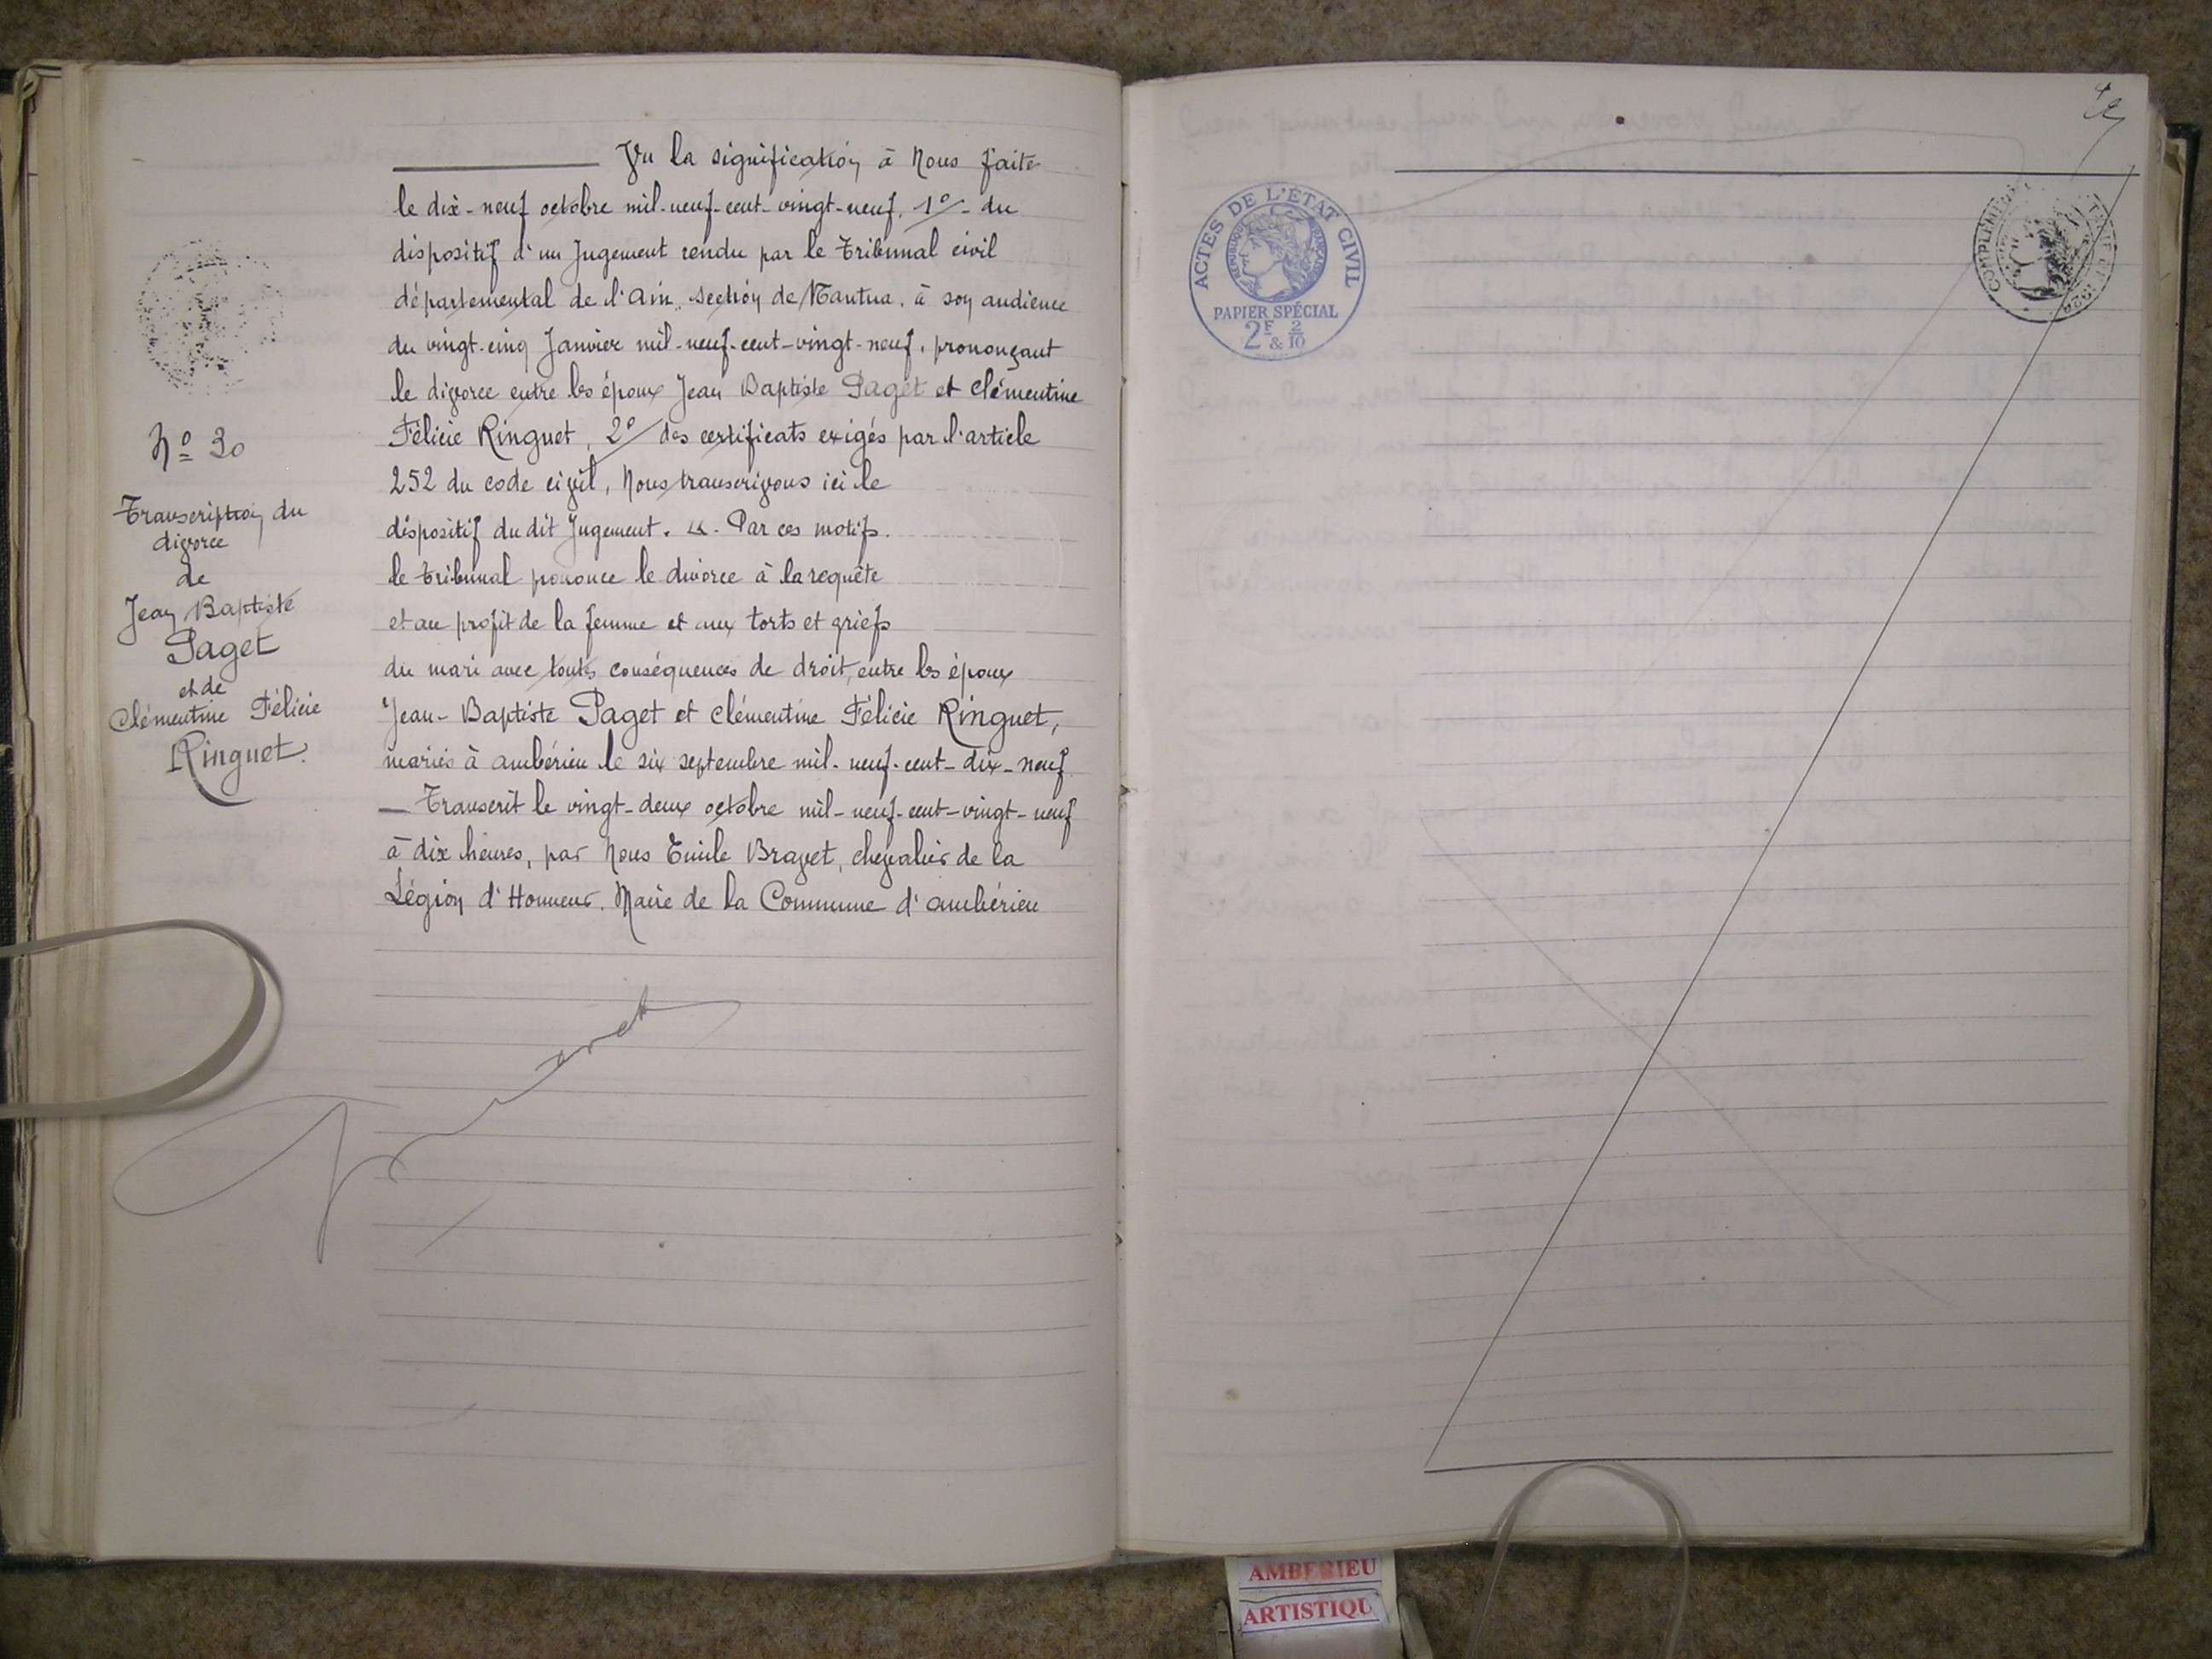 Nº 30
Transcription du
divorce
de
Jean Baptiste
Paget
et de
Clémentine Félicie
Ringuet.
Vu la signification à Nous faite
le dix-neuf octobre mil-neuf-cent-vingt-neuf, 1º/- du
dispositif d'un Jugement rendu par le Tribunal civil
départemental de l'Ain, section de Nantua, à son audience
du vingt-cinq Janvier mil-neuf-cent-vingt-neuf, prononçant
le divorce entre les époux Jean Baptiste Paget et Clémentine
Félicie Ringuet, 2º/ des certificats exigés par l'article
252 du code civil, Nous transcrivons ici le
dispositif du dit Jugement. « - Par ces motifs.
le Tribunal prononce le divorce à la requête
et au profit de la femme et aux torts et griefs
du mari avec toutes conséquences de droit, entre les époux
Jean-Baptiste Paget et Clémentine Félicie Ringuet,
mariés à Ambérieu le six septembre mil-neuf-cent-dix-neuf
— Transcrit le vingt-deux octobre mil-neuf-cent-vingt-neuf
à dix heures, par Nous Emile Bravet, chevalier de la
Légion d'Honneur, Maire de la Commune d'Ambérieu
ACTES DE L'ÉTAT CIVIL
RÉPUBLIQUE FRANÇAISE
PAPIER SPÉCIAL
2F & 2/10
AMBERIEU
ARTISTIQU